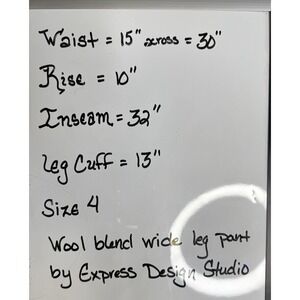 Waist = 15" across = 30"
Rise = 10"
Inseam = 32"
Leg Cuff = 13"
Size 4
Wool blend wide leg pant
by Express Design Studio